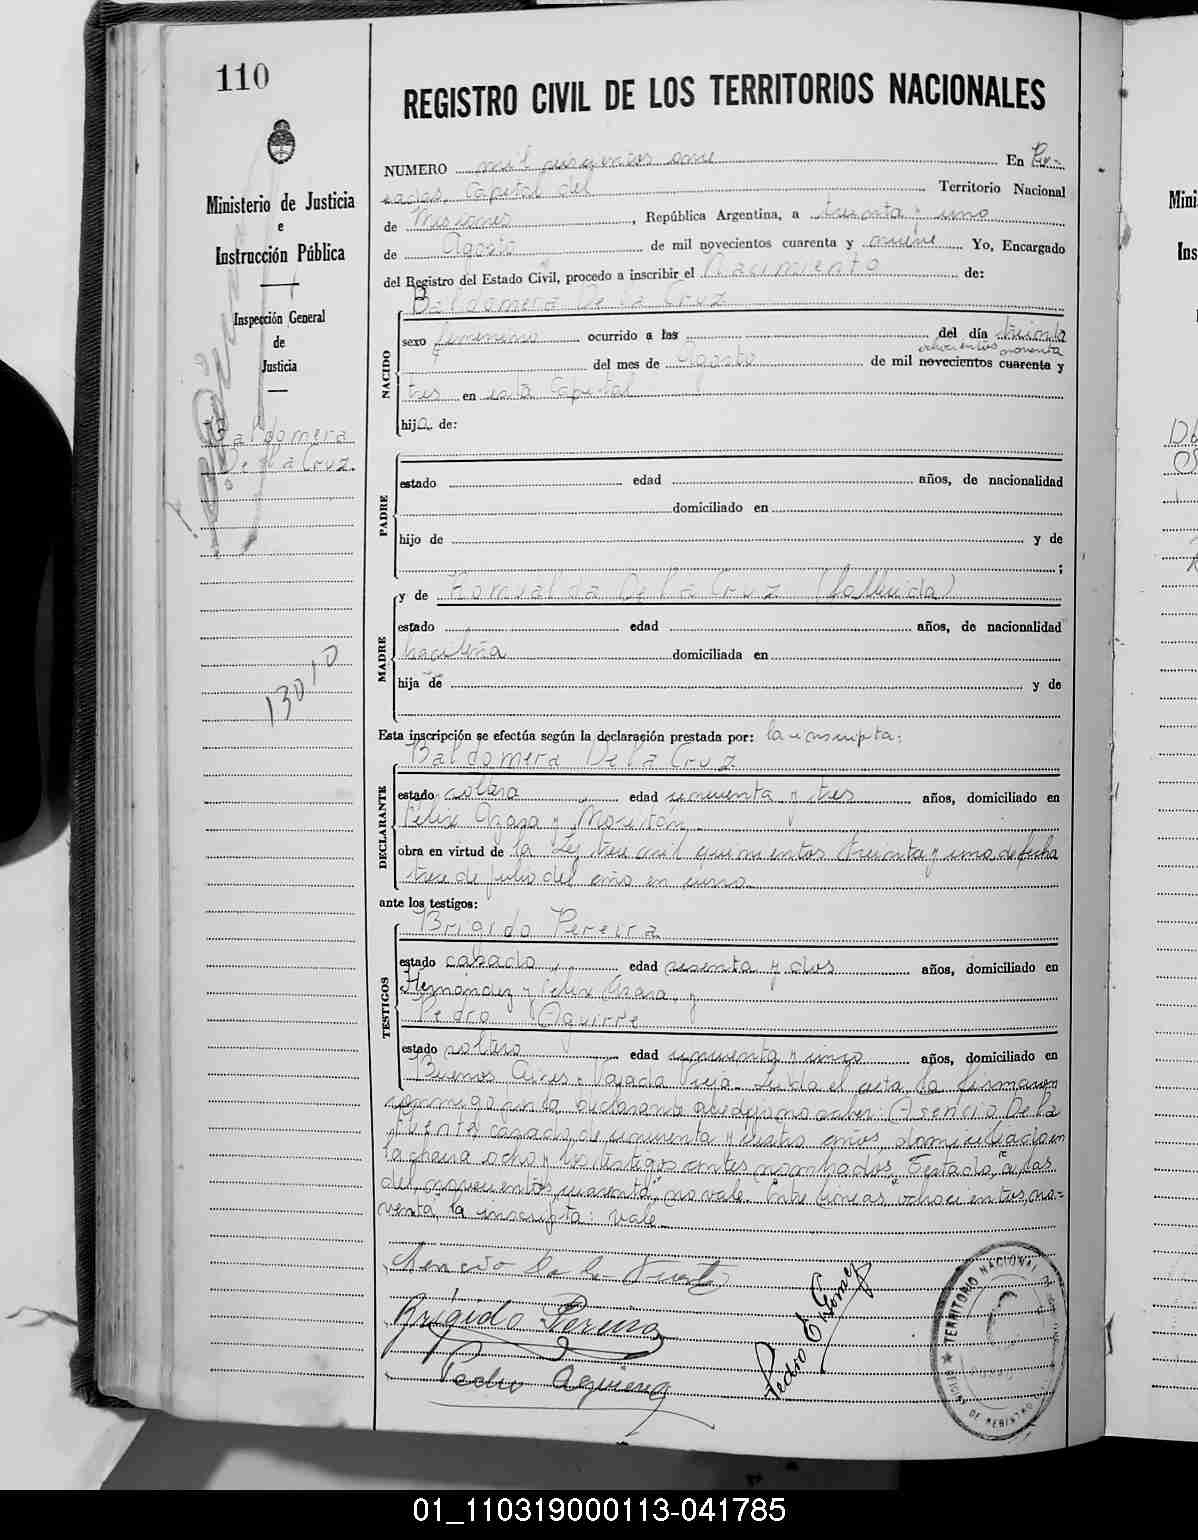 110
REGISTRO CIVIL DE LOS TERRITORIOS NACIONALES
Ministerio de Justicia
e
Instrucción Pública
Inspección General
de
Justicia
Baldomera
De la Cruz.
13010
NUMERO mil seiscientos once En Po-
sadas, Capital del Territorio Nacional
de Misiones, República Argentina, a treinta y uno
de Agosto de mil novecientos cuarenta y nueve Yo, Encargado
del Registro del Estado Civil, procedo a inscribir el Nacimiento de:
Baldomera De la Cruz
NACIDO
sexo femenino ocurrido a las del día treinta
ochocientos noventa
del mes de Agosto de mil novecientos cuarenta y
tres en esta Capital
hija de:
PADRE
estado edad años, de nacionalidad
domiciliado en
hijo de y de
;
MADRE
y de Romualda De la Cruz (fallecida)
estado edad años, de nacionalidad
brasileña domiciliada en
hija de y de
Esta inscripción se efectúa según la declaración prestada por: la inscripta:
Baldomera De la Cruz
DECLARANTE
estado soltera edad cincuenta y tres años, domiciliado en
Félix Azara y
obra en virtud de la Ley trece mil quinientos treinta y uno de fecha
trece de julio del año en curso.
ante los testigos:
Brigido Pereira
TESTIGOS
estado casado edad sesenta y dos años, domiciliado en
Hernández y Félix Azara, y
Pedro Aguirre
estado soltero edad cincuenta y cinco años, domiciliado en
Buenos Aires - Bajada Vieja. Leída el acta la firmaron
conmigo por la declarante que dijo no saber: Asencio De la
Fuente, casado, de cincuenta y cuatro años, domiciliado en
la chacra ocho y los testigos antes nombrados. Testado, "a las
del, novecientos, cuarenta", no vale. Entre líneas "ochocientos, no-
venta", la inscripta: vale.
Asencio de la Fuente
Brígido Pereira
Pedro Aguirre
Pedro E Gomez
TERRITORIO NACIONAL
DE REGISTRO
01_110319000113-041785